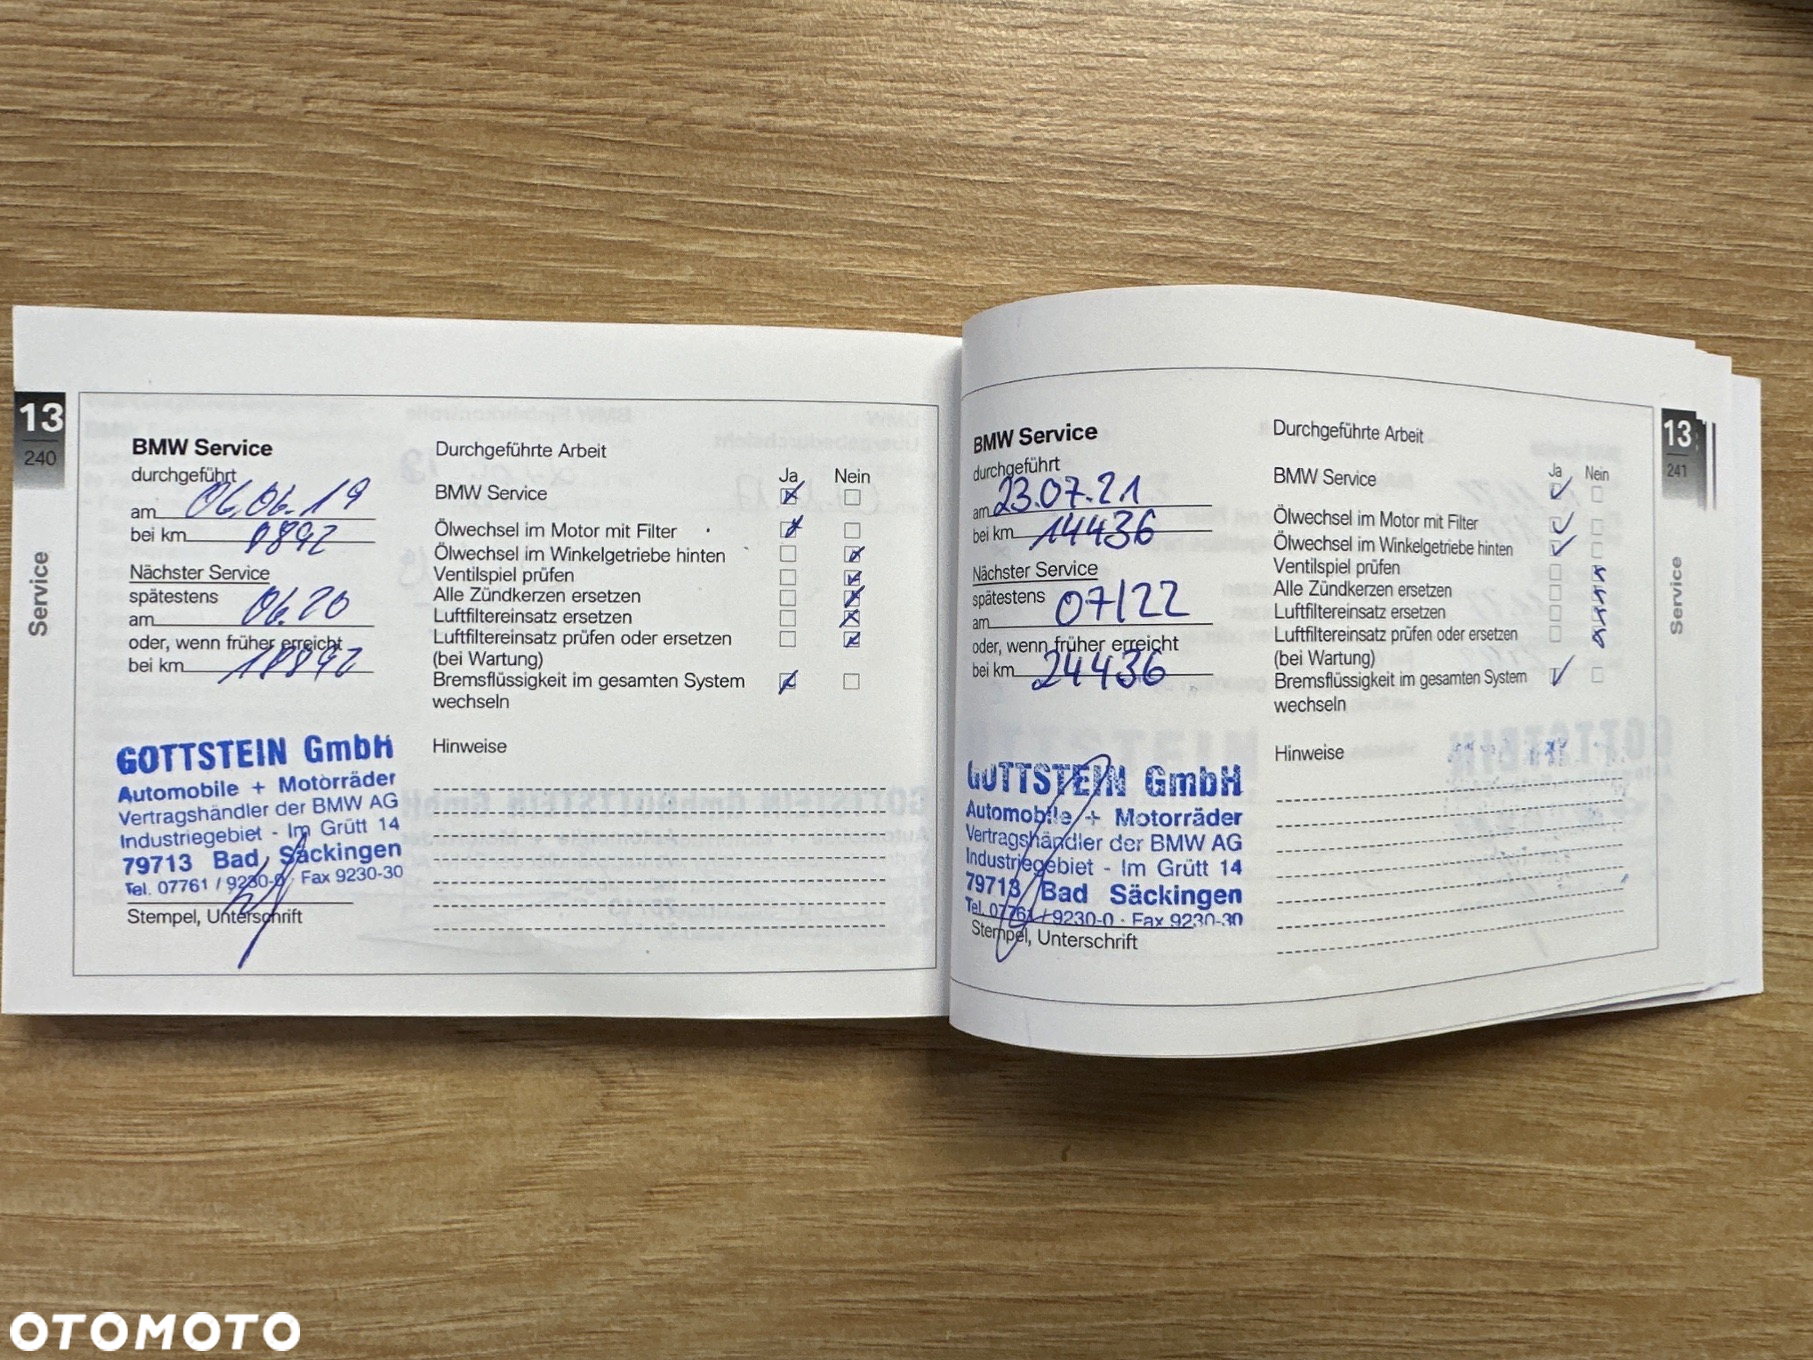 13
240
Service
BMW Service
durchgeführt
am 06.06.19
bei km 8892
Nächster Service
spätestens
am 06.20
oder, wenn früher erreicht
bei km 18892
GOTTSTEIN GmbH
Automobile + Motorräder
Vertragshändler der BMW AG
Industriegebiet - Im Grütt 14
79713 Bad Säckingen
Tel. 07761 / 9230-0 · Fax 9230-30
Stempel, Unterschrift
Durchgeführte Arbeit
Ja Nein
BMW Service
Ölwechsel im Motor mit Filter
Ölwechsel im Winkelgetriebe hinten
Ventilspiel prüfen
Alle Zündkerzen ersetzen
Luftfiltereinsatz ersetzen
Luftfiltereinsatz prüfen oder ersetzen
(bei Wartung)
Bremsflüssigkeit im gesamten System
wechseln
Hinweise
BMW Service
durchgeführt
am 23.07.21
bei km 14436
Nächster Service
spätestens
am 07/22
oder, wenn früher erreicht
bei km 24436
GOTTSTEIN GmbH
Automobile + Motorräder
Vertragshändler der BMW AG
Industriegebiet - Im Grütt 14
79713 Bad Säckingen
Tel. 07761 / 9230-0 · Fax 9230-30
Stempel, Unterschrift
Durchgeführte Arbeit
Ja Nein
BMW Service
Ölwechsel im Motor mit Filter
Ölwechsel im Winkelgetriebe hinten
Ventilspiel prüfen
Alle Zündkerzen ersetzen
Luftfiltereinsatz ersetzen
Luftfiltereinsatz prüfen oder ersetzen
(bei Wartung)
Bremsflüssigkeit im gesamten System
wechseln
Hinweise
13
241
Service
OTOMOTO